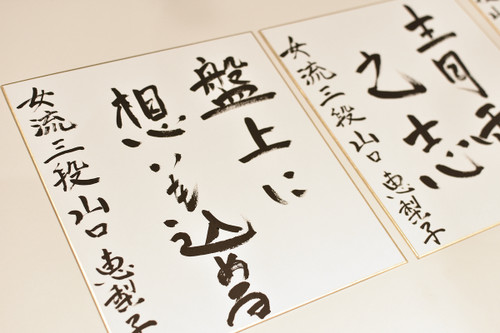 盤上に
想いを込める
女流三段 山口恵梨子
青雲
之志
女流三段 山口恵梨子